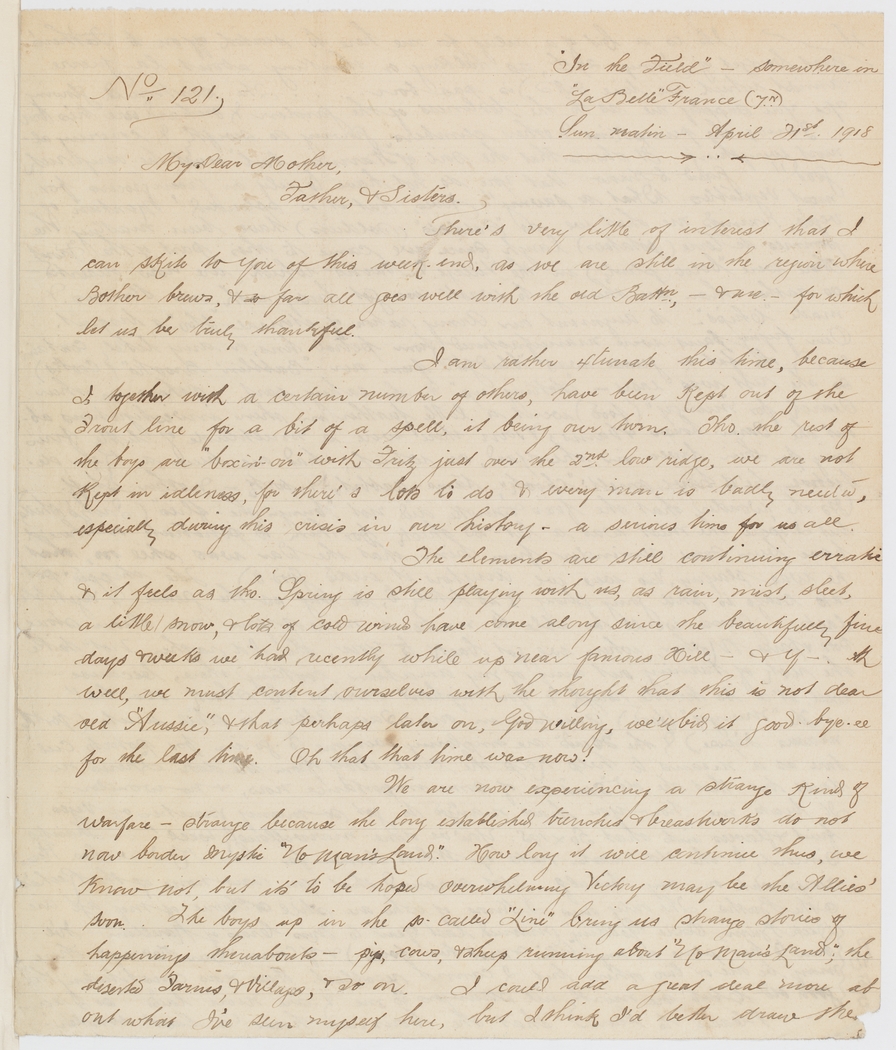 "In the Field" – somewhere in
No. 121.,
"La Belle" France
Sun. matin – April 21st. 1918
My Dear Mother,
Father, & Sisters.
There's very little of interest that I
can skite to you of this week-end, as we are still in the region where
Bother brews, & so far all goes well with the old Battn, – & me. – for which
let us be truly thankful.
I am rather 4tunate this time, because
I, together with a certain number of others, have been kept out of the
Front line for a bit of a spell, it being our turn. Tho. the rest of
the boys are "boxin'-on" with Fritz just over the 2nd. low ridge, we are not
kept in idleness, for there's lots to do & every man is badly need'd,
especially during this crisis in our history – a serious time for us all.
The elements are still continuing erratic
& it feels as tho. Spring is still playing with us, as rain, mist, sleet,
a little snow, & lots of cold winds have come along since the beautifully fine
days & weeks we had recently while up near famous Hill – & Y –.
well, we must content ourselves with the thought that this is not dear
old "Aussie", & that perhaps later on, God willing, we'll bid it good-bye-ee
for the last time. Oh that that time was now!
We are now experiencing a strange kind of
warfare – strange because the long established trenches & breastworks do not
now border "No Man's Land". How long it will continue thus, we
know not, but it's to be hoped overwhelming Victory may be the Allies'
soon. The boys up in the so-called "Line" bring us strange stories of
happenings thereabouts – pigs, cows, & sheep running about "No Man's Land", the
deserted Farms, & Villages, & so on. I could add a great deal more ab-
out what I've seen myself here, but I think I'd better draw the